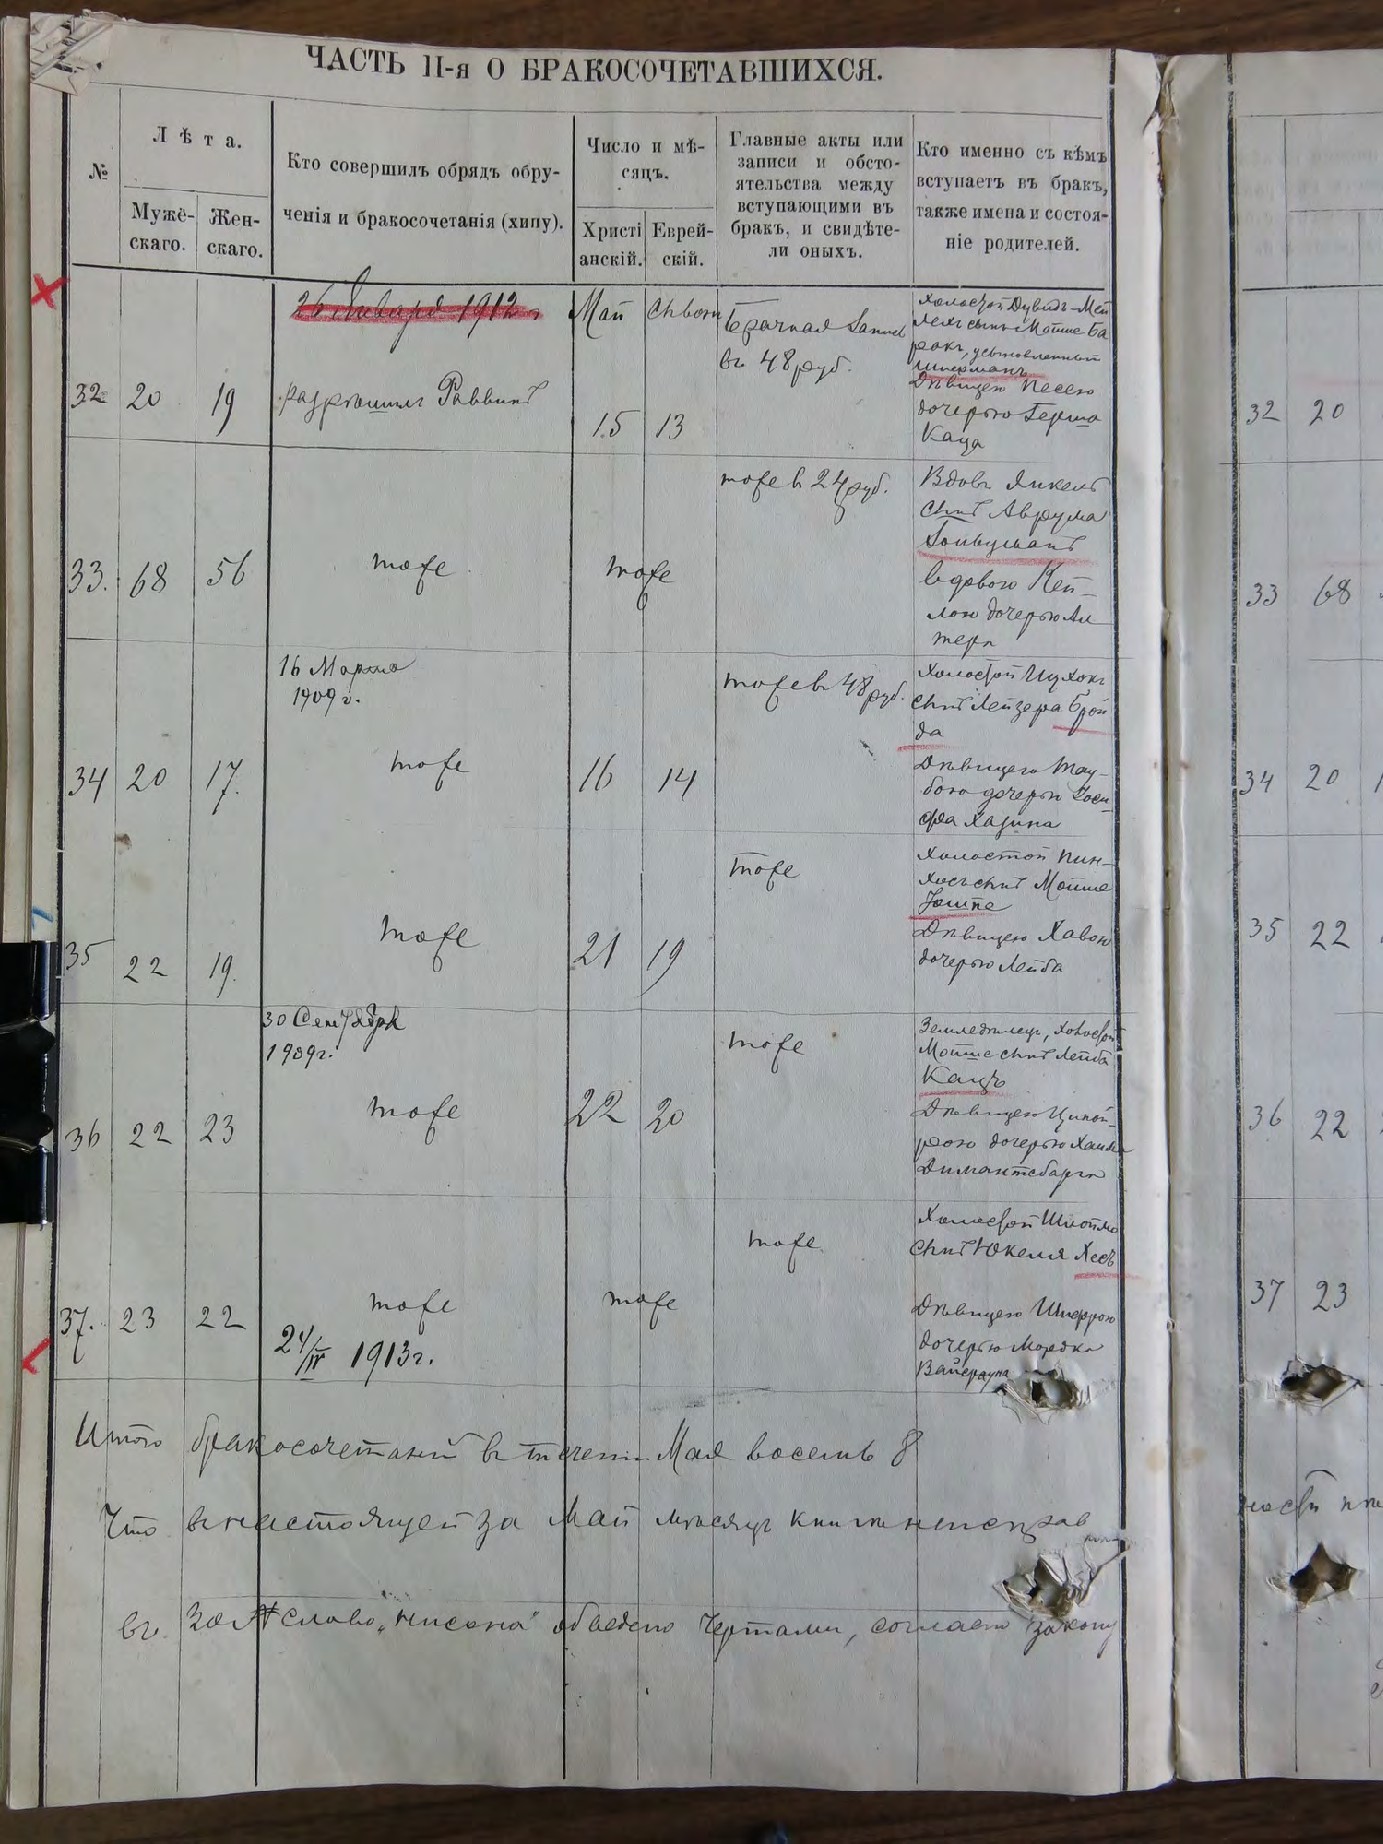 ЧАСТЬ II-я О БРАКОСОЧЕТАВШИХСЯ.
№
Лѣта.
Мужě-
скаго.
Жен-
скаго.
Кто совершилъ обрядъ обру-
ченія и бракосочетанія (хипу).
Число и мѣ-
сяцъ.
Христі
анскій.
Еврей-
скій.
Главные акты или
записи и обсто-
ятельства между
вступающими въ
бракъ, и свидѣте-
ли оныхъ.
Кто именно съ кѣмъ
вступаетъ въ бракъ,
также имена и состоя-
ніе родителей.
26 Января 1912 г
32 20 19
Раввинъ
Май
15 13
Брачная
въ 48 руб.
Холостой Дувидъ-Мен
сынъ Мошко Ба
усыновленный
Дѣвицею Песею
дочерью Герша
Каца
33. 68 56
тоже
тоже
тоже в 24 руб.
Вдовъ Янкель
сынъ Аврума
вдовою Кей-
лою дочерью Ал
тера
16 Марта
1909 г.
34 20 17.
тоже
16 14
тоже въ 48 руб.
Холостой Ицхокъ
сынъ Лейзера Брой
да
Дѣвицею Тау-
бою дочерью Іоси
фа Хазина
35 22 19.
тоже
21 19
тоже
Холостой Пин-
хосъ сынъ Мошко
Дѣвицею Хавою
дочерью Лейба
30 Сентября
1909 г.
36 22 23
тоже
22 20
тоже
Земледѣлецъ, холостой
Мошко сынъ Лейба
Кацъ
Дѣвицею Ципой-
рою дочерью Хаима
Димантсбарга
37. 23 22
тоже
24/IV 1913 г.
тоже
тоже
Холостой Шлойма
сынъ Юкеля Хесъ
Дѣвицею Шифрою
дочерью Мордка
Итого бракосочетаній въ теченіи Мая восемь 8
Что в настоящей за Май мѣсяцъ книгѣ неисправ
слово обведено чертами, согласно закону
32 20
33 68
34 20
35 22
36 22
37 23